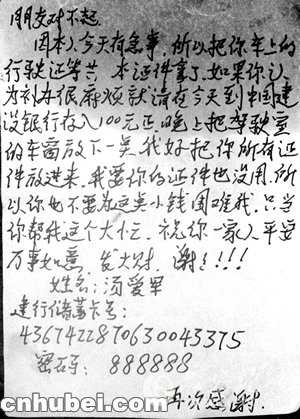 朋友对不起
因本人今天有急事，所以把你车上的
行驶证等共 本证件拿了如果你认
为补办很麻烦就请在今天到中国建
设银行存入100元正.晚上把驾驶室
的车窗放下一点我好把你所有证
件放进来，我要你的证件也没用，所
以你也不要为这点小钱园难我，只当
你帮我这个大忙，祝你一家人平安
万事如意，发大财，谢谢!!!
姓名:汤爱军
建行储蓄卡号:
4367422870630043375
密码: 888888
再次感谢
cnhubei.com